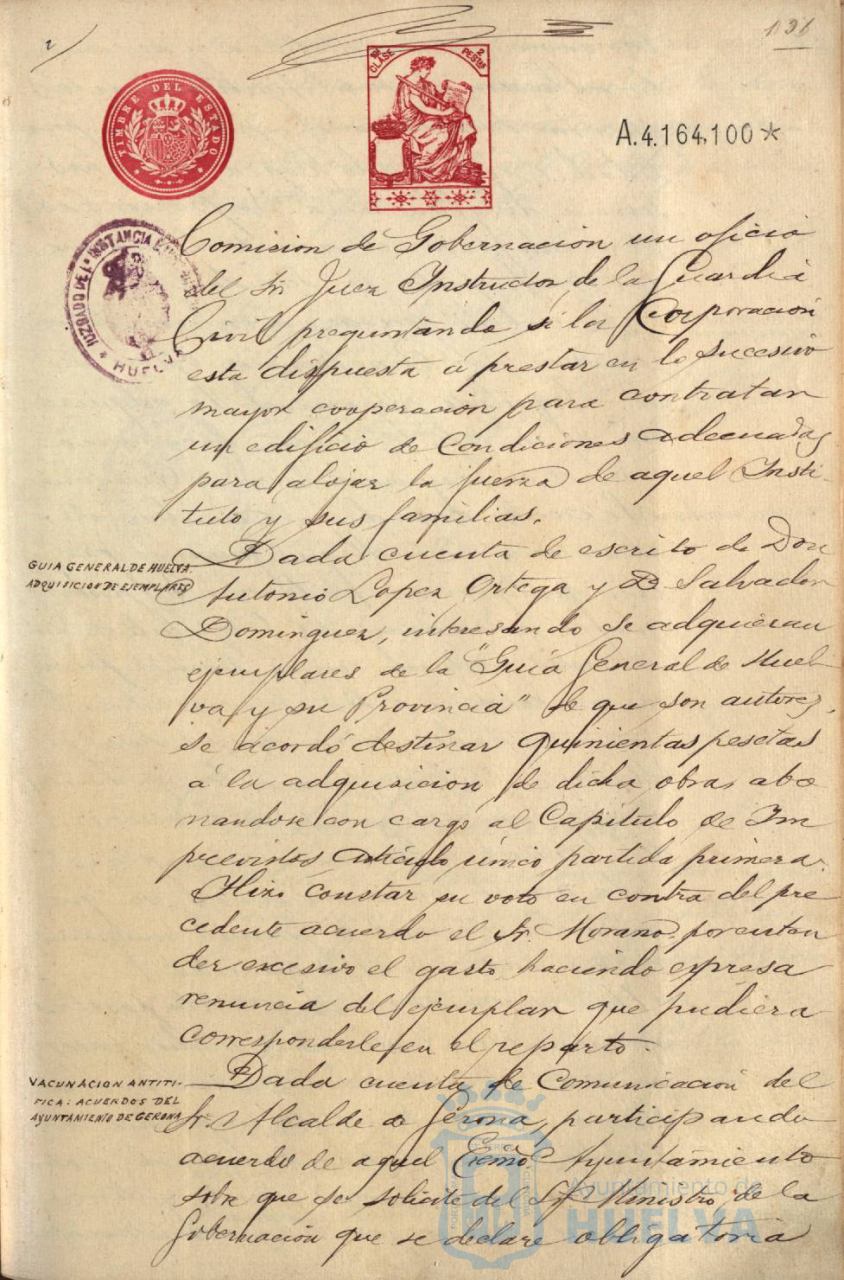 2
131
TIMBRE DEL ESTADO
CLASE
2
PESETAS
A.4.164,100*
JUZGADO DE 1ª INSTANCIA
HUELVA
Comision de Gobernacion un oficio
del Sr. Juez Instructor de la Guardia
Civil preguntando si la Corporacion
esta dispuesta á prestar en lo sucesivo
mayor cooperación para contratar
un edificio de condiciones adecuadas
para alojar la fuerza de aquel Insti-
tuto y sus familias.
GUIA GENERAL DE HUELVA.
ADQUISICION DE EJEMPLARES
Dada cuenta de escrito de Don
Antonio Lopez Ortega y D. Salvador
Dominguez, interesando se adquieran
ejemplares de la "Guia General de Huel-
va y su Provincia" de que son autores,
se acordó destinar quinientas pesetas
á la adquisicion de dicha obra, abo
nandose con cargo al Capitulo de Im
previstos articulo único partida primera.
Hizo constar su voto en contra del pre
cedente acuerdo el Sr. Morano, por enten
der excesivo el gasto haciendo expresa
renuncia del ejemplar que pudiera
corresponderle en el reparto.
VACUNACION ANTITI-
FICA: ACUERDOS DEL
AYUNTAMIENTO DE GERONA
Dada cuenta de Comunicación del
Sr. Alcalde de Gerona, participando
acuerdo de aquel Excmo. Ayuntamiento
sobre que se solicite del Sr. Ministro de la
Gobernacion que se declare obligatoria
Ayuntamiento de
HUELVA